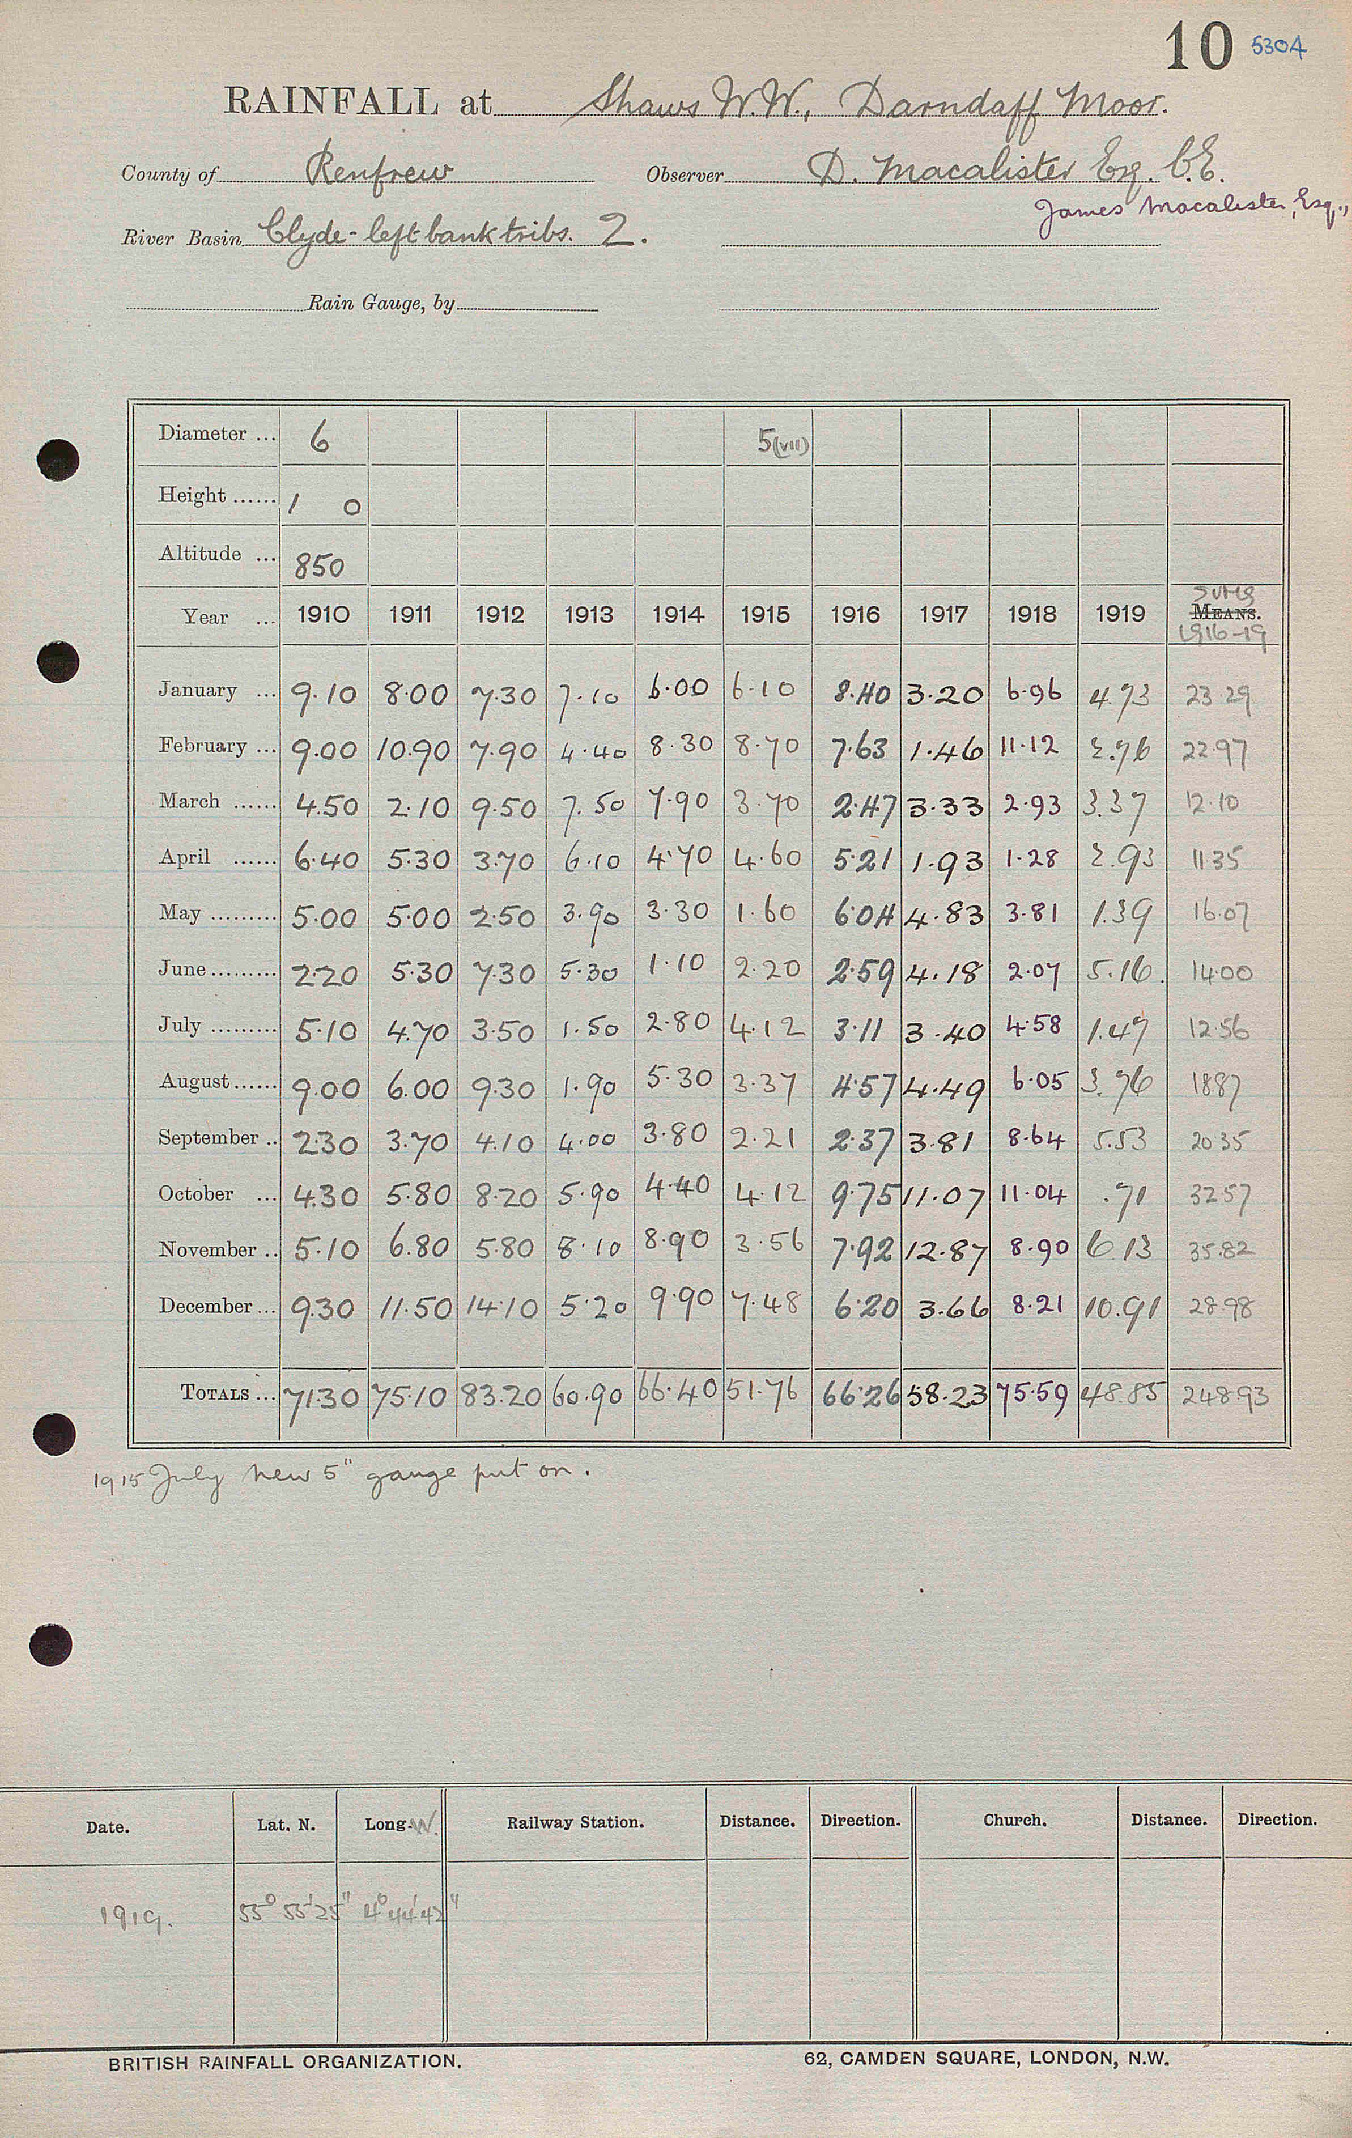 10 5304
RAINFALL at Shaws W.W., Darndaff Moor.
County of Renfrew Observer D. Macalister Esq. C.E.
James Macalister, Esq.,
River Basin Clyde - left bank tribs. 2.
Rain Gauge, by
Diameter ... 6 5(VII)
Height ...... 1 0
Altitude ... 850
SUMS
Year ... 1910 1911 1912 1913 1914 1915 1916 1917 1918 1919 MEANS.
1916-19
January ... 9.10 8.00 7.30 7.10 6.00 6.10 8.40 3.20 6.96 4.73 23.29
February ... 9.00 10.90 7.90 4.40 8.30 8.70 7.63 1.46 11.12 2.76 22.97
March ...... 4.50 2.10 9.50 7.50 7.90 3.70 2.47 3.33 2.93 3.37 12.10
April ...... 6.40 5.30 3.70 6.10 4.70 4.60 5.21 1.93 1.28 2.93 11.35
May ......... 5.00 5.00 2.50 3.90 3.30 1.60 6.04 4.83 3.81 1.39 16.07
June ......... 2.20 5.30 7.30 5.30 1.10 2.20 2.59 4.18 2.07 5.16 14.00
July ......... 5.10 4.70 3.50 1.50 2.80 4.12 3.11 3.40 4.58 1.47 12.56
August ...... 9.00 6.00 9.30 1.90 5.30 3.37 4.57 4.49 6.05 3.76 18.87
September .. 2.30 3.70 4.10 4.00 3.80 2.21 2.37 3.81 8.64 5.53 20.35
October ... 4.30 5.80 8.20 5.90 4.40 4.12 9.75 11.07 11.04 .71 32.57
November .. 5.10 6.80 5.80 8.10 8.90 3.56 7.92 12.87 8.90 6.13 35.82
December ... 9.30 11.50 14.10 5.20 9.90 7.48 6.20 3.66 8.21 10.91 28.98
TOTALS ... 71.30 75.10 83.20 60.90 66.40 51.76 66.26 58.23 75.59 48.85 248.93
1915 July new 5" gauge put on.
Date. Lat. N. Long. W. Railway Station. Distance. Direction. Church. Distance. Direction.
1919. 55° 55' 25" 4° 44' 42"
BRITISH RAINFALL ORGANIZATION. 62, CAMDEN SQUARE, LONDON, N.W.